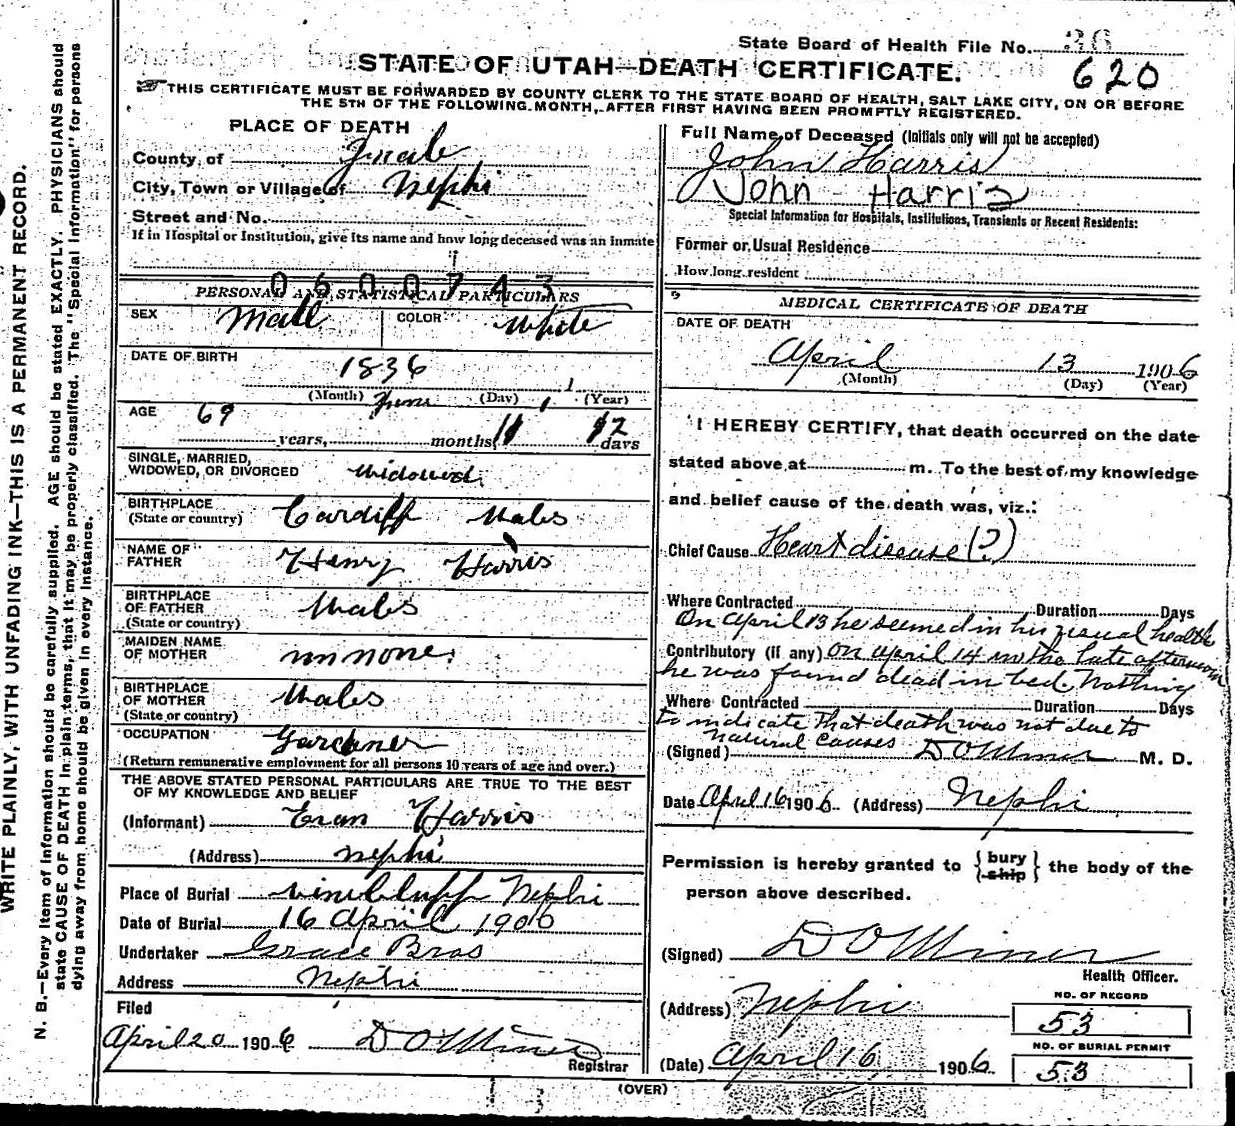 State Board of Health File No. 36
STATE OF UTAH—DEATH CERTIFICATE.
620
THIS CERTIFICATE MUST BE FORWARDED BY COUNTY CLERK TO THE STATE BOARD OF HEALTH, SALT LAKE CITY, ON OR BEFORE
THE 5TH OF THE FOLLOWING MONTH, AFTER FIRST HAVING BEEN PROMPTLY REGISTERED.
WRITE PLAINLY, WITH UNFADING INK—THIS IS A PERMANENT RECORD.
N. B.—Every item of information should be carefully supplied. AGE should be stated EXACTLY. PHYSICIANS should
state CAUSE OF DEATH in plain terms, that it may be properly classified. The "Special Information" for persons
dying away from home should be given in every instance.
PLACE OF DEATH
County of Juab
City, Town or Village of Nephi
Street and No.
If in Hospital or Institution, give its name and how long deceased was an inmate
0600743
PERSONAL AND STATISTICAL PARTICULARS
SEX Male COLOR White
DATE OF BIRTH 1836
(Month) June (Day) 1 (Year)
AGE 69 years, months 11 12 days
SINGLE, MARRIED,
WIDOWED, OR DIVORCED widowed
BIRTHPLACE
(State or country) Cardiff Wales
NAME OF
FATHER Henry Harris
BIRTHPLACE
OF FATHER Wales
(State or country)
MAIDEN NAME
OF MOTHER
BIRTHPLACE
OF MOTHER Wales
(State or country)
OCCUPATION Gardener
(Return remunerative employment for all persons 10 years of age and over.)
THE ABOVE STATED PERSONAL PARTICULARS ARE TRUE TO THE BEST
OF MY KNOWLEDGE AND BELIEF
(Informant) Evan Harris
(Address) Nephi
Place of Burial vinebluff Nephi
Date of Burial 16 April 1906
Undertaker Grace Bros
Address Nephi
Filed
April 20 1906 D O Miner
Registrar
Full Name of Deceased (Initials only will not be accepted)
John Harris
John Harris
Special Information for Hospitals, Institutions, Transients or Recent Residents:
Former or Usual Residence
How long resident
MEDICAL CERTIFICATE OF DEATH
DATE OF DEATH
April 13 1906
(Month) (Day) (Year)
I HEREBY CERTIFY, that death occurred on the date
stated above, at m. To the best of my knowledge
and belief cause of the death was, viz.:
Chief Cause Heart disease (?)
Where Contracted Duration Days
On April 13 he seemed in his usual health
Contributory (if any) On April 14 in the late afternoon
he was found dead in bed. Nothing
Where Contracted Duration Days
to indicate that death was not due to
natural causes
(Signed) D O Miner M. D.
Date April 16 1906. (Address) Nephi
Permission is hereby granted to { bury ship } the body of the
person above described.
(Signed) D O Miner
Health Officer.
(Address) Nephi
(Date) April 16 1906.
NO. OF RECORD
53
NO. OF BURIAL PERMIT
53
(OVER)